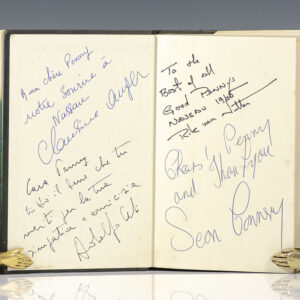 A ma chère Penny
notre sourire à
Nassau
Claudine Auger
Cara Penny
tutto il bene che tu
meriti per la tua
simpatia e amicizia
Adolfo Celi
To the
Best of all
Good Pennys
Nassau 1965
Rik van Nutter
Cheers! Penny
and Thank you
Sean Connery